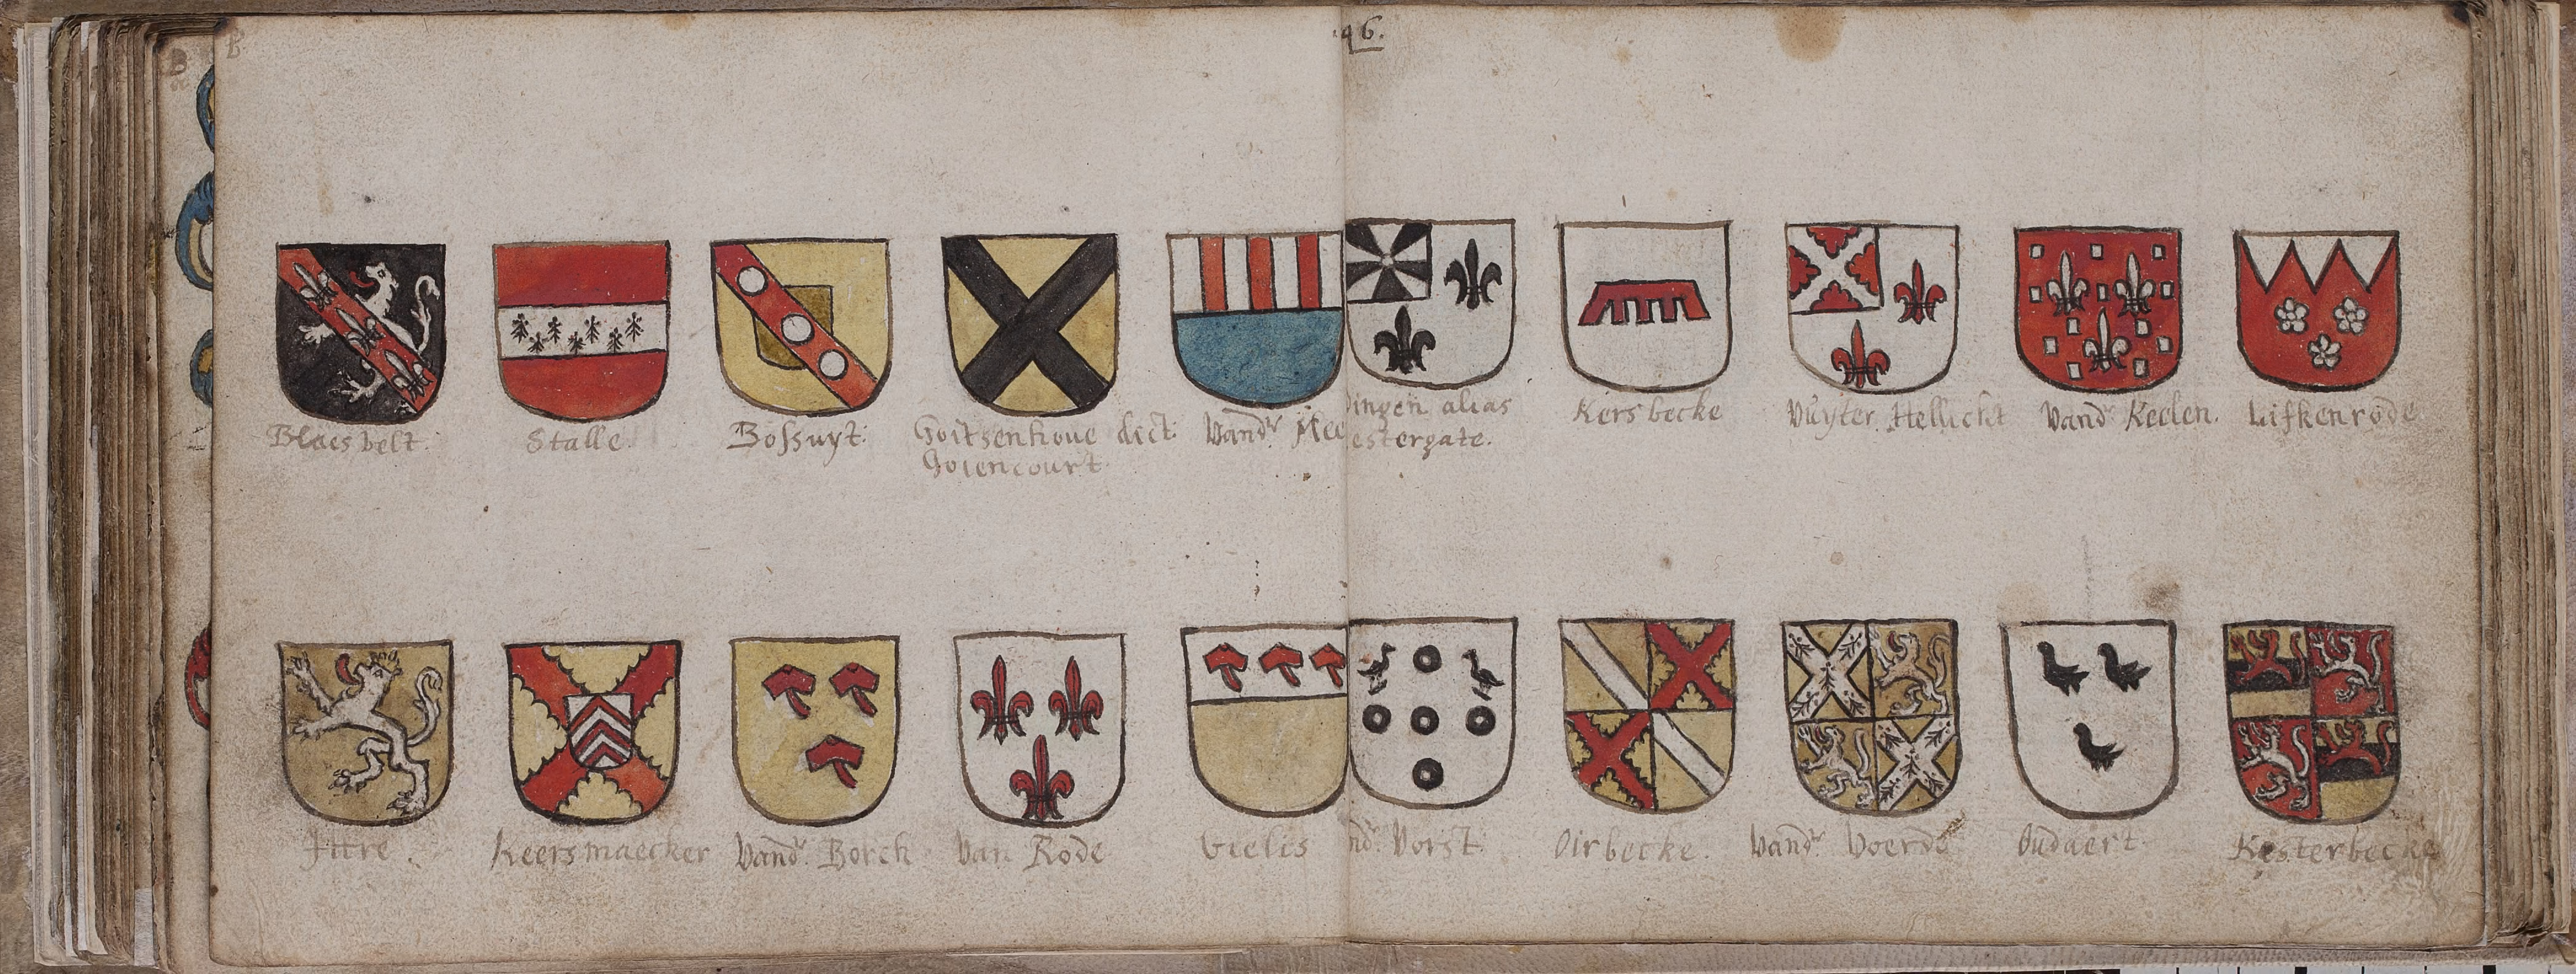 B
B
.96.
Blaesvelt.
Stalle.
Bossuyt:
Goitsenhoue dict:
Goiencourt
Vandr Mee
ingen alias
estergate.
Kersbecke
Vuyter Hellicht
Vandr Keelen.
Lifkenrode
Ittre.
Keersmaecker
Vandr Borch
Van Rode
Vielis
ndr Vorst:
Oirbecke.
Vandr Voerde
Oudaert.
Kesterbecke